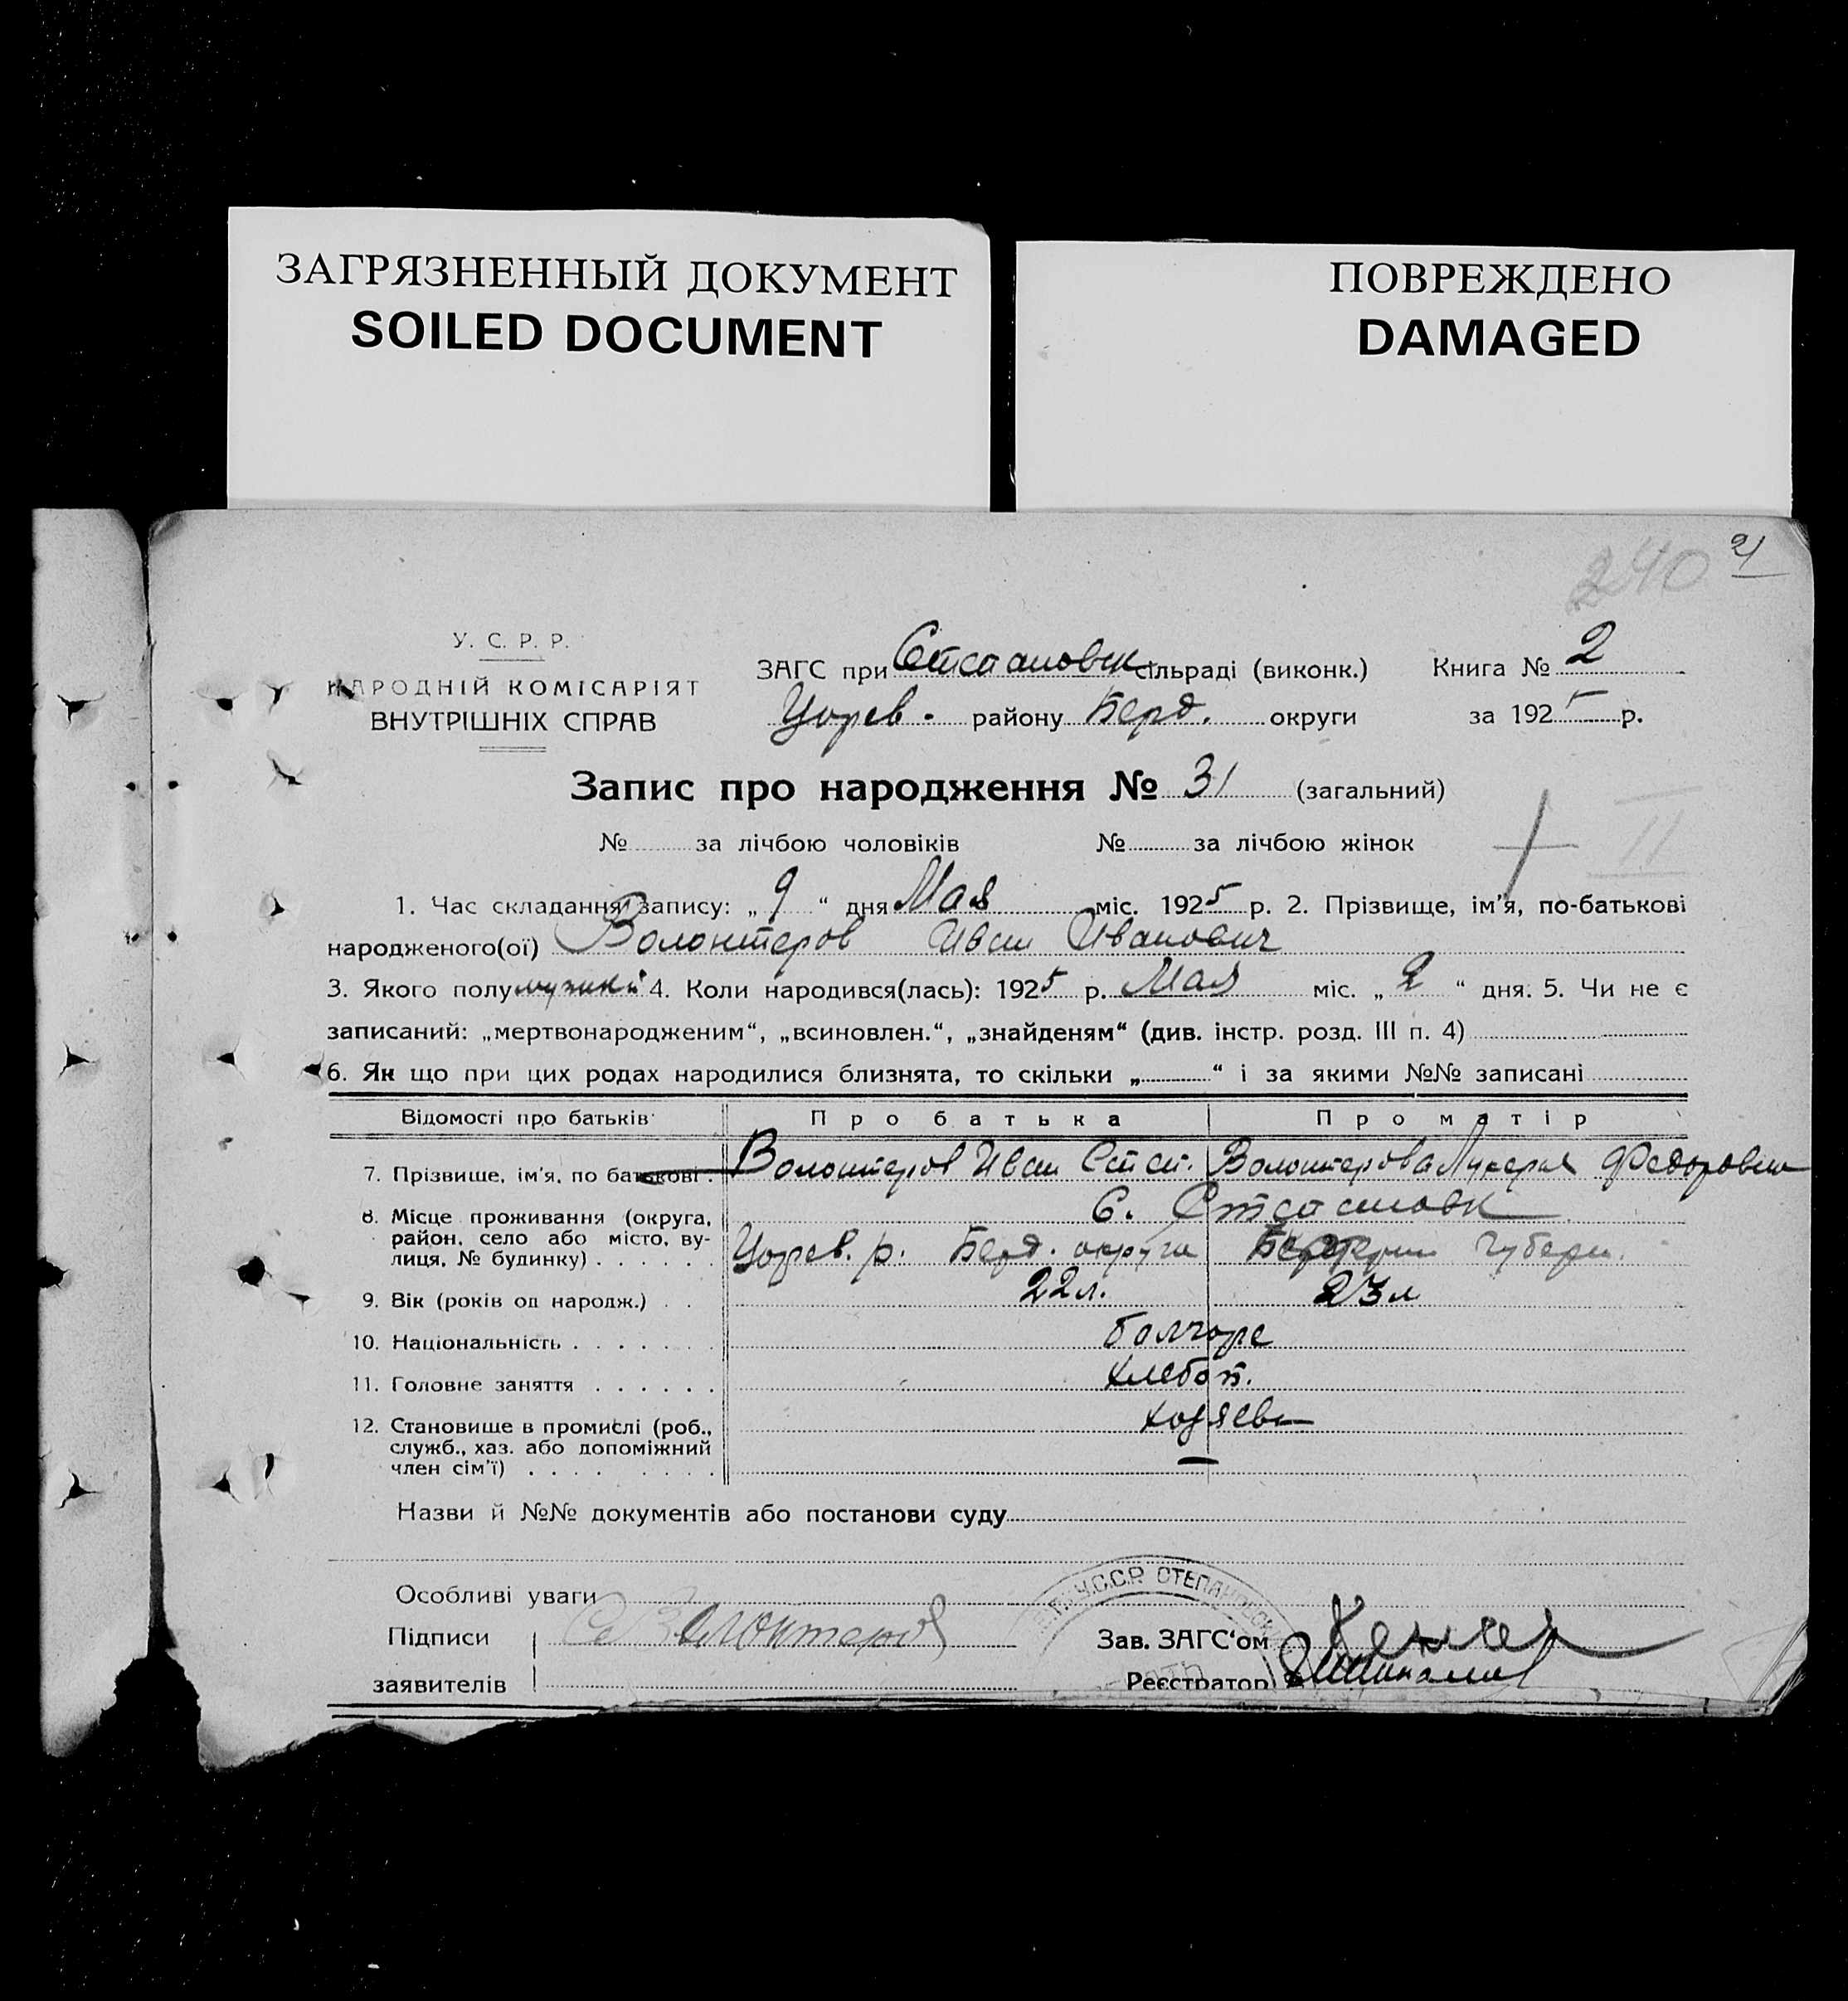 ЗАГРЯЗНЕННЫЙ ДОКУМЕНТ
SOILED DOCUMENT
ПОВРЕЖДЕНО
DAMAGED
240 21
У. С. Р. Р.
НАРОДНІЙ КОМІСАРІЯТ
ВНУТРІШНІХ СПРАВ
ЗАГС при Степановк сільраді (виконк.) Книга № 2
Царев. району Берд. округи за 1925 р.
Запис про народження № 31 (загальний)
№ за лічбою чоловіків № за лічбою жінок
1. Час складання запису: „ 9 “ дня Мая міс. 1925 р. 2. Прізвище, ім'я, по-батькові
народженого(ої) Волонтеров Иван Иванович
3. Якого полу 4. Коли народився(лась): 1925 р. Мая міс. „ 2 “ дня. 5. Чи не є
записаний: „мертвонародженим“, „всиновлен.“, „знайденям“ (див. інстр. розд. III п. 4)
6. Як що при цих родах народилися близнята, то скільки „ “ і за якими №№ записані
Відомості про батьків Про батька Про матір
7. Прізвище, ім'я, по батькові . Волонтеров Иван Степ. Волонтерова Лукерья Федоровна
8. Місце проживання (округа, С. Степановк
район, село або місто, ву-
лиця, № будинку) . . . . . . Царев. р. Берд. округа губерн.
9. Вік (років од народж.) . . 22 л. 23 л
10. Національність . . . . . . . болгаре
11. Головне заняття . . . . . . хлебоп.
12. Становище в промислі (роб., хозяева
служб., хаз. або допоміжний
член сім'ї) . . . . . . . . —
Назви й №№ документів або постанови суду
Особливі уваги
У.С.С.Р. СТЕПАНОВСКИ
Підписи Волонтеров Зав. ЗАГС'ом
заявителів Реєстратор